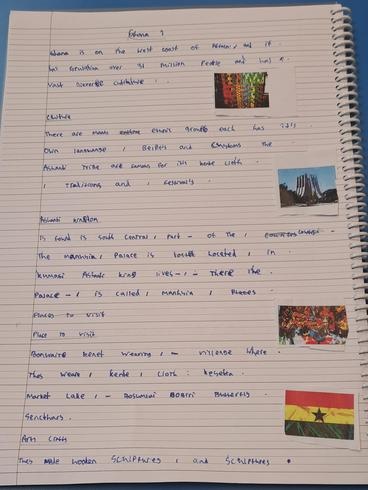 Ghana
Ghana is on the West coast of Africa, and it
has population over 31 million People and has a
Vast
Culture
There are many ethnic groups each has it's
Own language, Beliefs and the
Ashanti Tribe are famous for its kente cloth
, Traditions and, Festivals
Ashanti kingdom
Is found is South Central, Part - of The,
The Manhyia, Palace is located, in
kumasi Ashanti king lives -, - There the
Palace -, is called, Manhyia, Places
Places to visit
Place to visit
Bonwaire kenet Wearing, - village where
They Weave, kente, cloth:
Market Lake, - Bosumwi BOBIRI Butterfly
Sencthury.
Arts Crafts
They made wooden SCULPTURES, and SCULPTURES